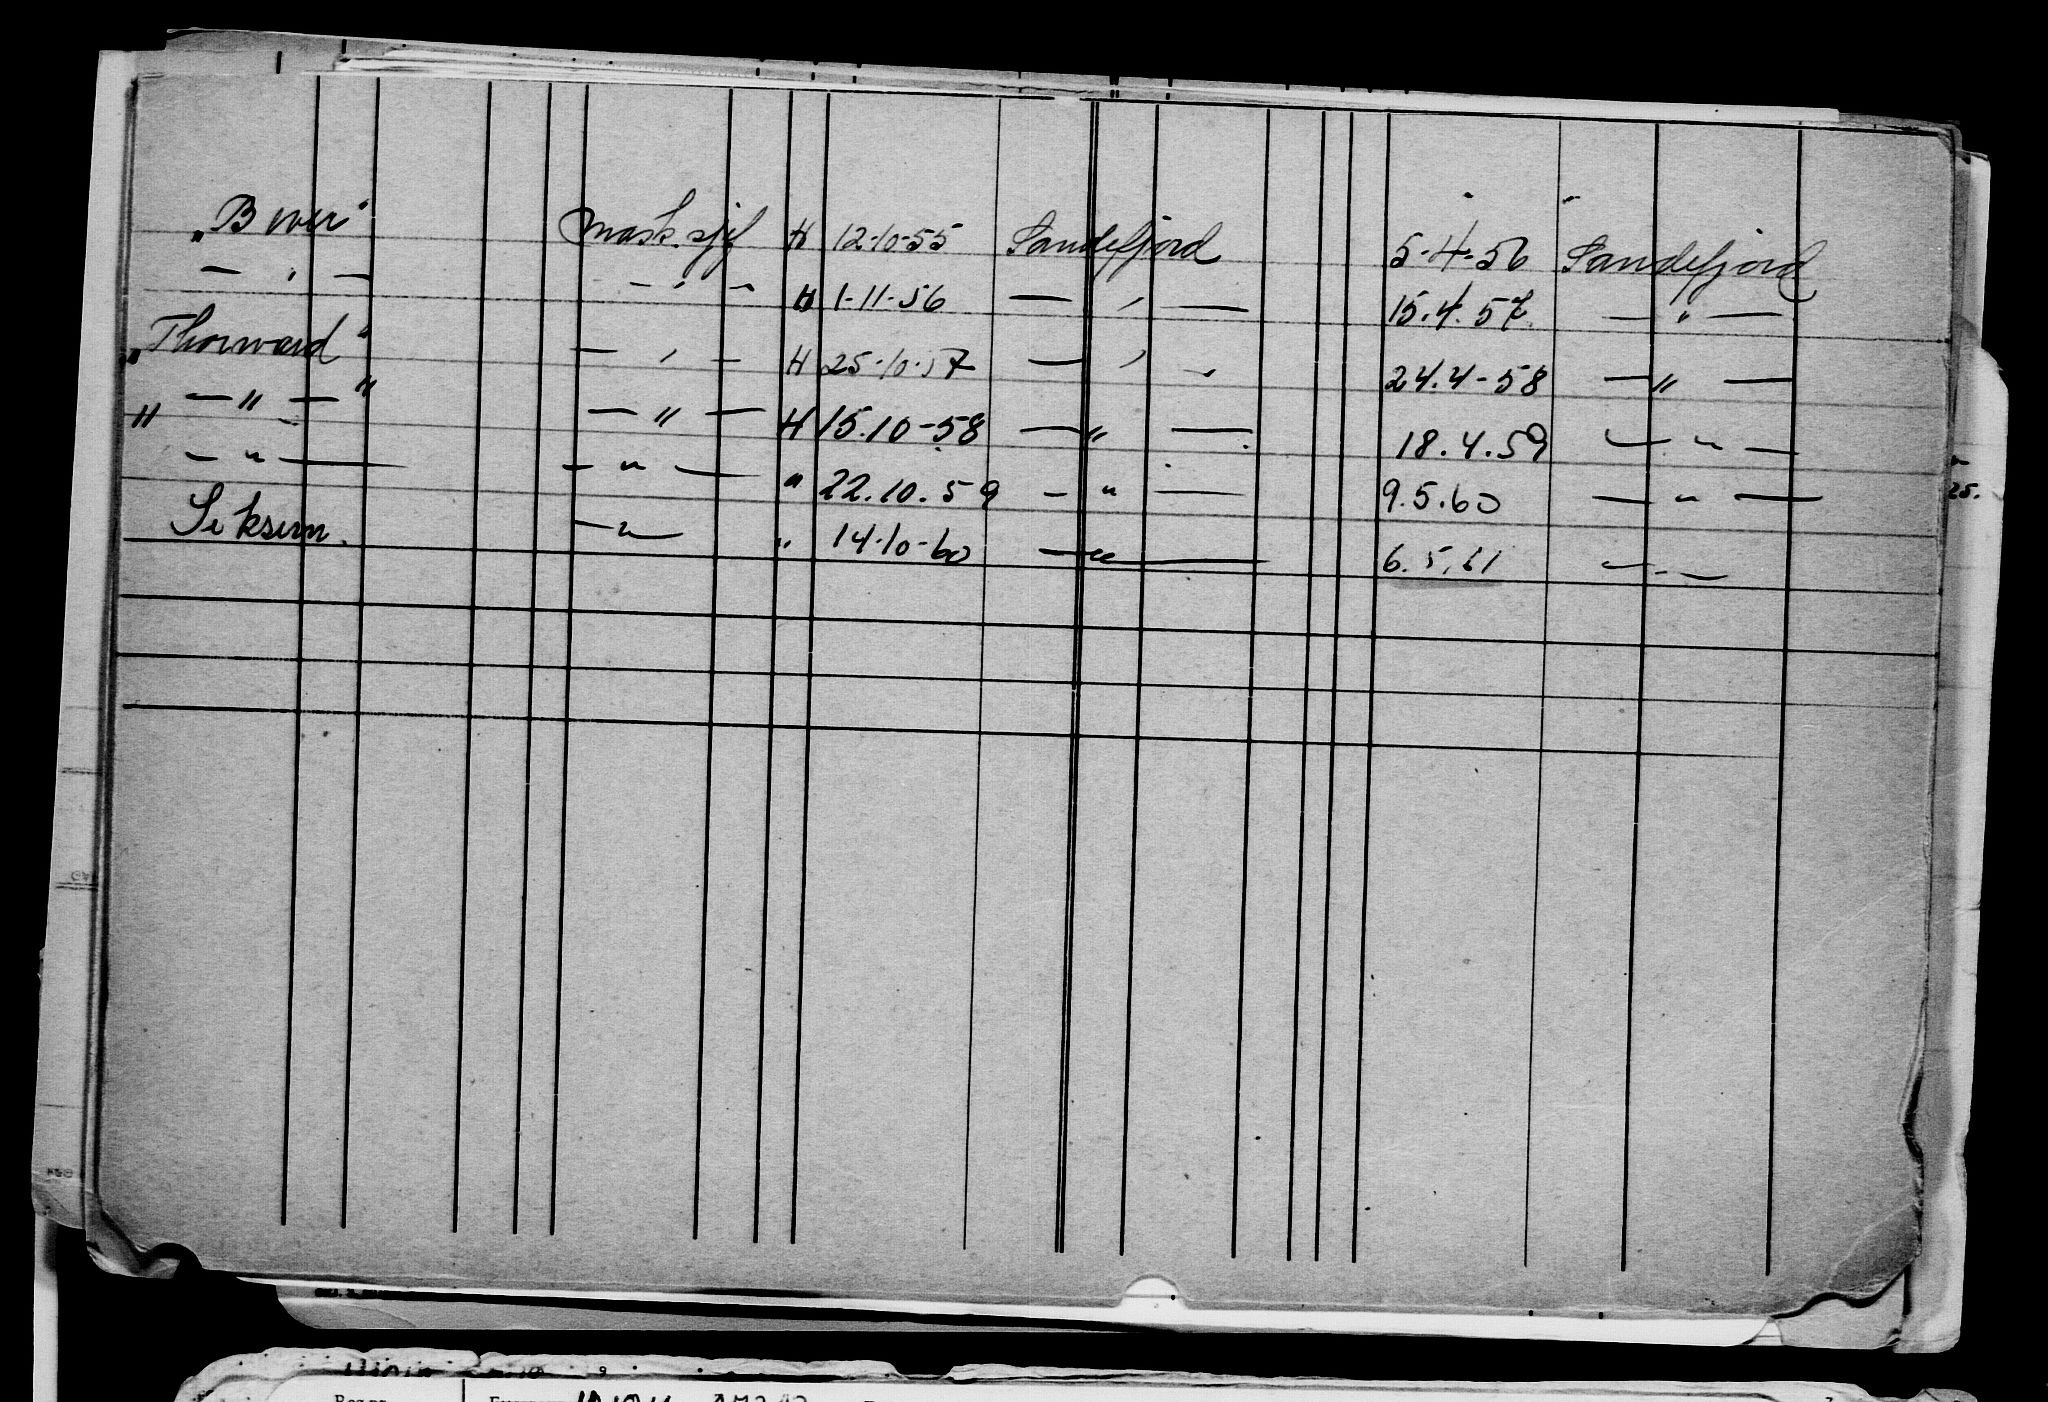 „Bever" mask. sjef H 12-10-55 Sandefjord 5-4-56 Sandefjord
— " — — " — H 1-11-56 — " — 15.4.57 — " —
„Thorvard" — " — H 25-10-57 — " — 24.4-58 — " —
" — " — " — " — H 15.10-58 — " — 18.4.59 — " —
— " — — " — " 22.10.59 — " — 9.5.60 — " —
Seksern. — " — " 14-10-60 — " — 6.5.61 — " —
25.